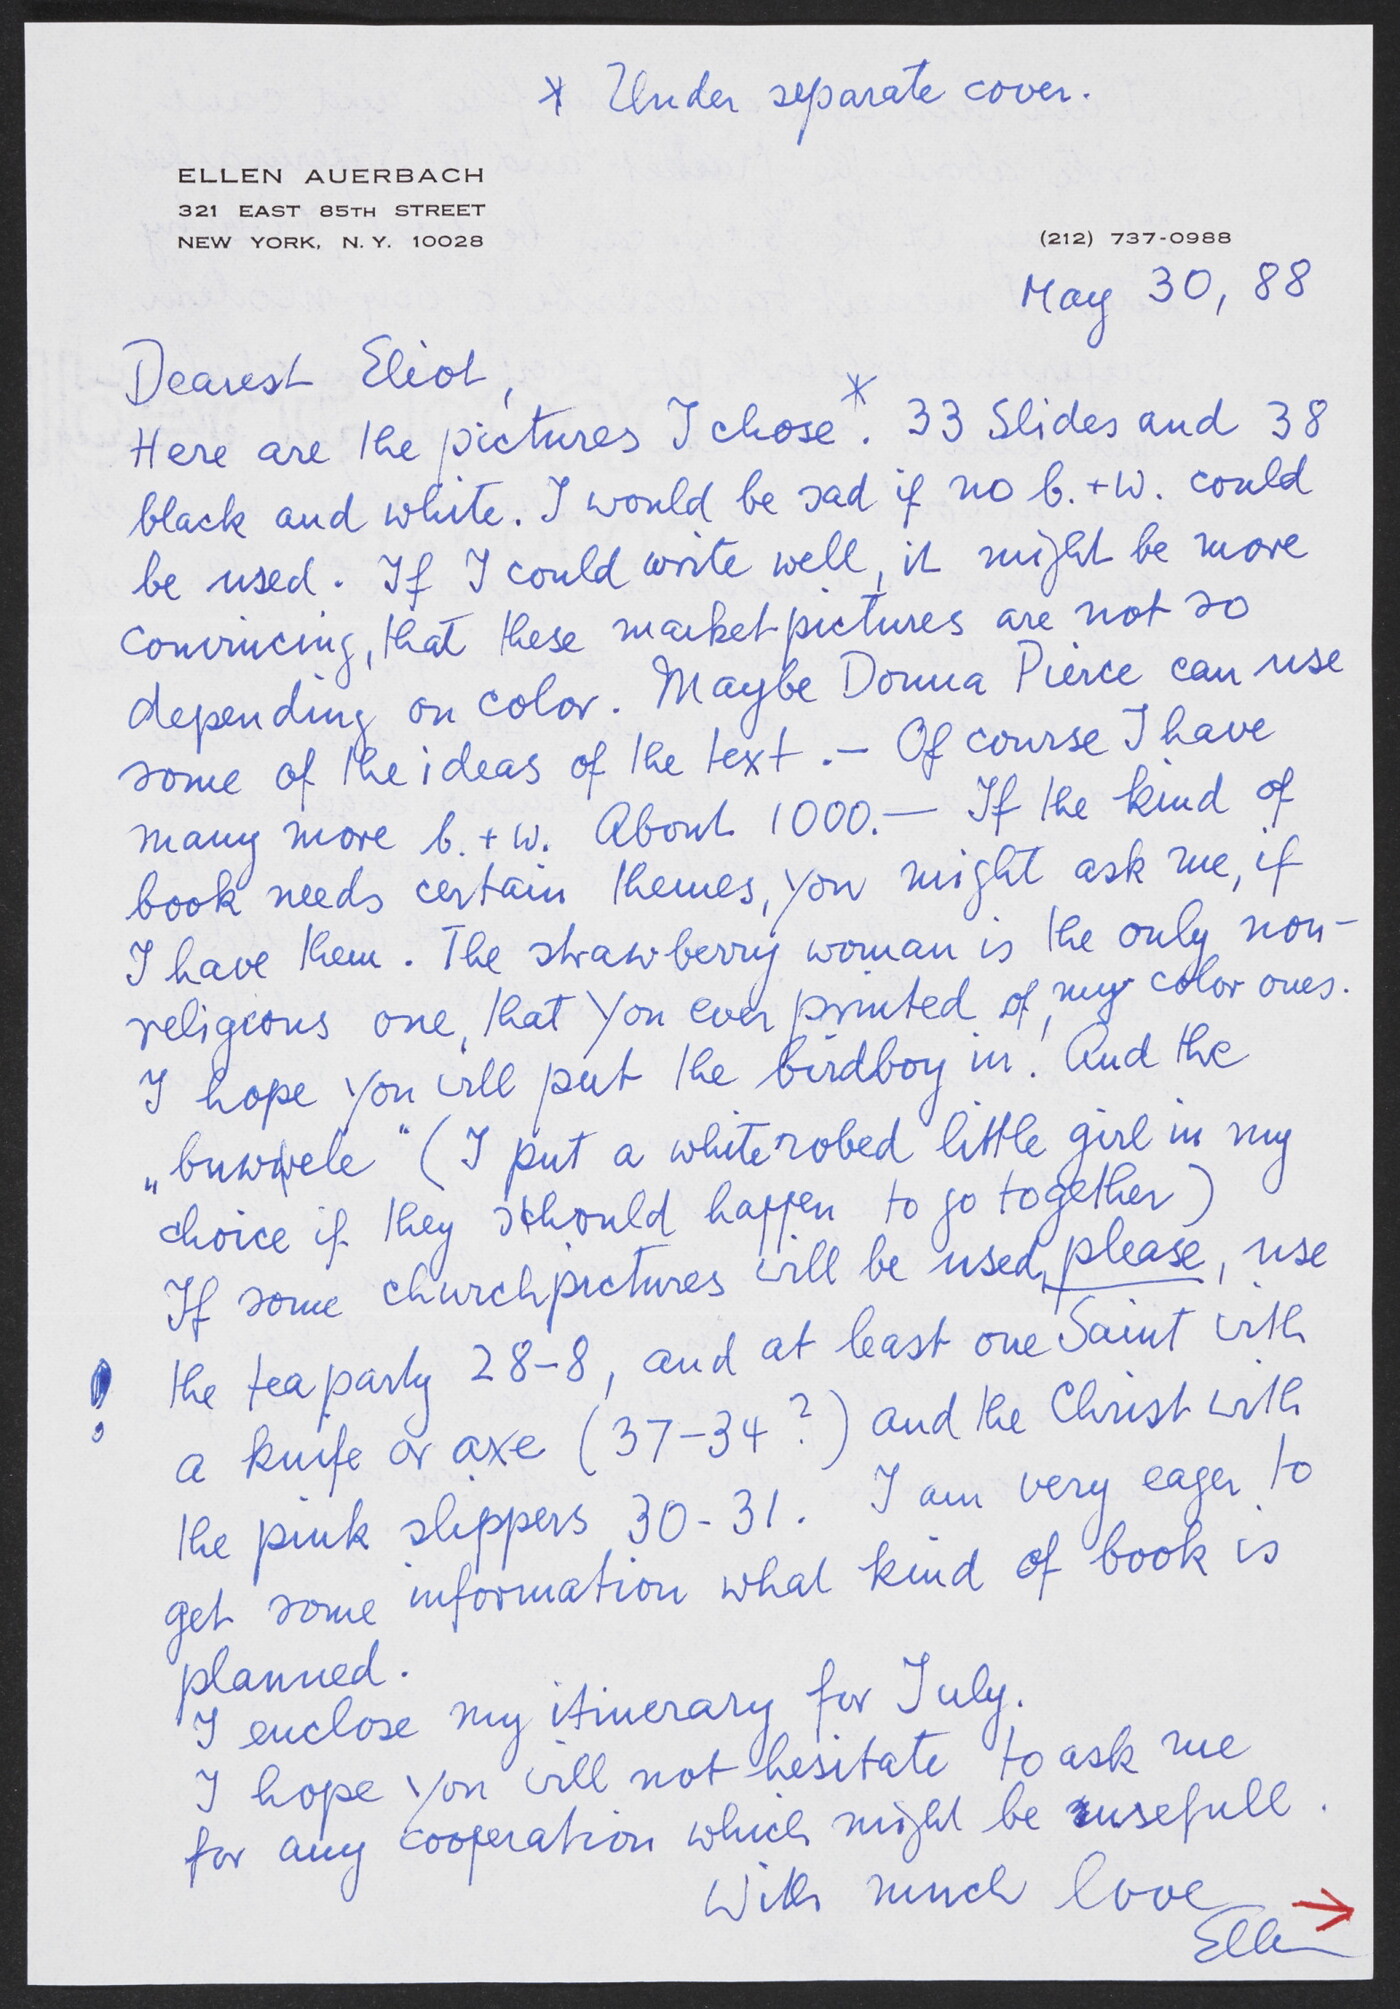 * Under separate cover.
ELLEN AUERBACH
321 EAST 85TH STREET
NEW YORK, N.Y. 10028
(212) 737-0988
May 30, 88
Dearest Eliot,
Here are the pictures I chose*. 33 Slides and 38
black and white. I would be sad if no b.+w. could
be used. If I could write well, it might be more
convincing, that these marketpictures are not so
depending on color. Maybe Donna Pierce can use
some of the ideas of the text.— Of course I have
many more b.+w. About 1000.— If the kind of
book needs certain themes, you might ask me, if
I have them. The strawberry woman is the only non-
religious one, that you ever printed of my color ones.
I hope you will put the birdboy in! And the
(I put a white robed little girl in my
choice if they should happen to go together)
If some churchpictures will be used, please, use
! the teaparty 28-8, and at least one Saint with
a knife or axe (37-34?) and the Christ with
the pink slippers 30-31. I am very eager to
get some information what kind of book is
planned.
I enclose my itinerary for July.
I hope you will not hesitate to ask me
for any cooperation which might be usefull.
With much love
Ellen →